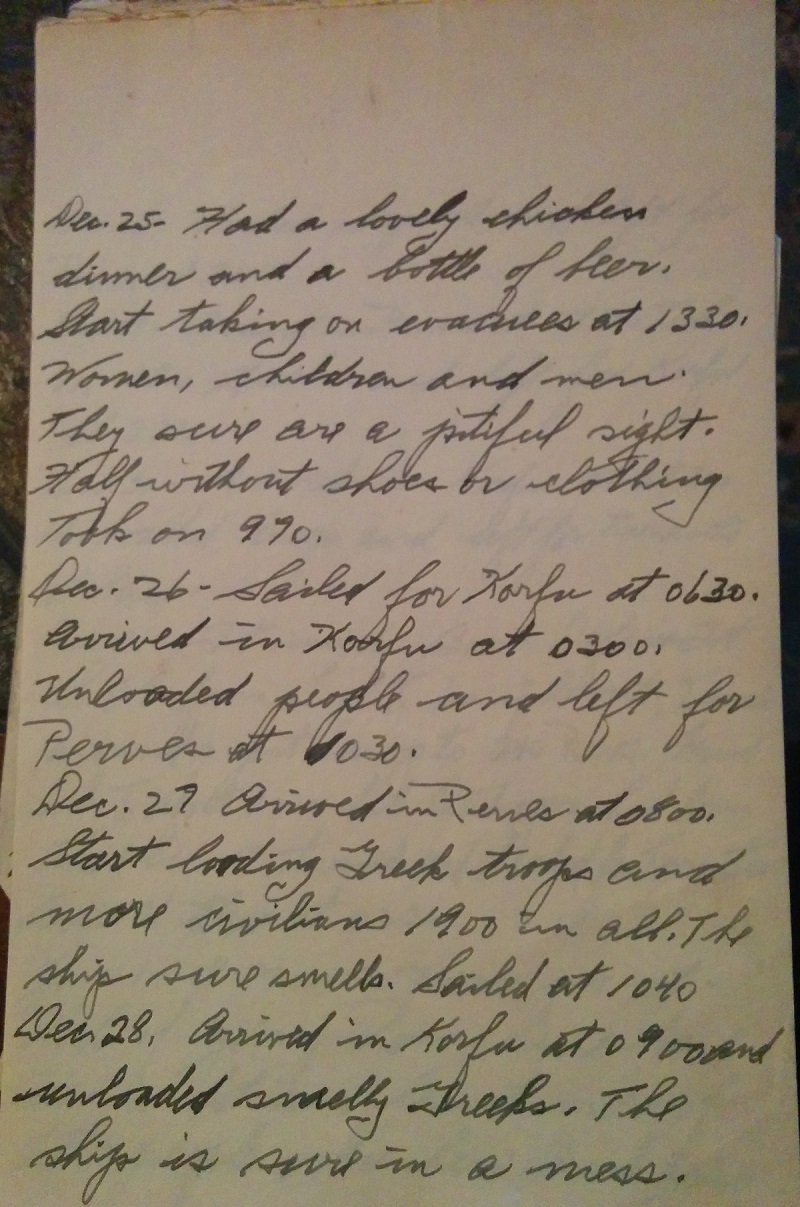 Dec. 25- Had a lovely chicken
dinner and a bottle of beer.
Start taking on evacuees at 1330.
Women, children and men.
They sure are a pitiful sight.
Half without shoes or clothing
Took on 990.
Dec. 26- Sailed for Korfu at 0630.
Arrived in Korfu at 0300.
Unloaded people and left for
Perves at 1030.
Dec. 27 Arrived in Perves at 0800.
Start loading Greek troops and
more civilians 1900 in all. The
ship sure smells. Sailed at 1040
Dec. 28. Arrived in Korfu at 0900 and
unloaded smelly Greeks. The
ship is sure in a mess.